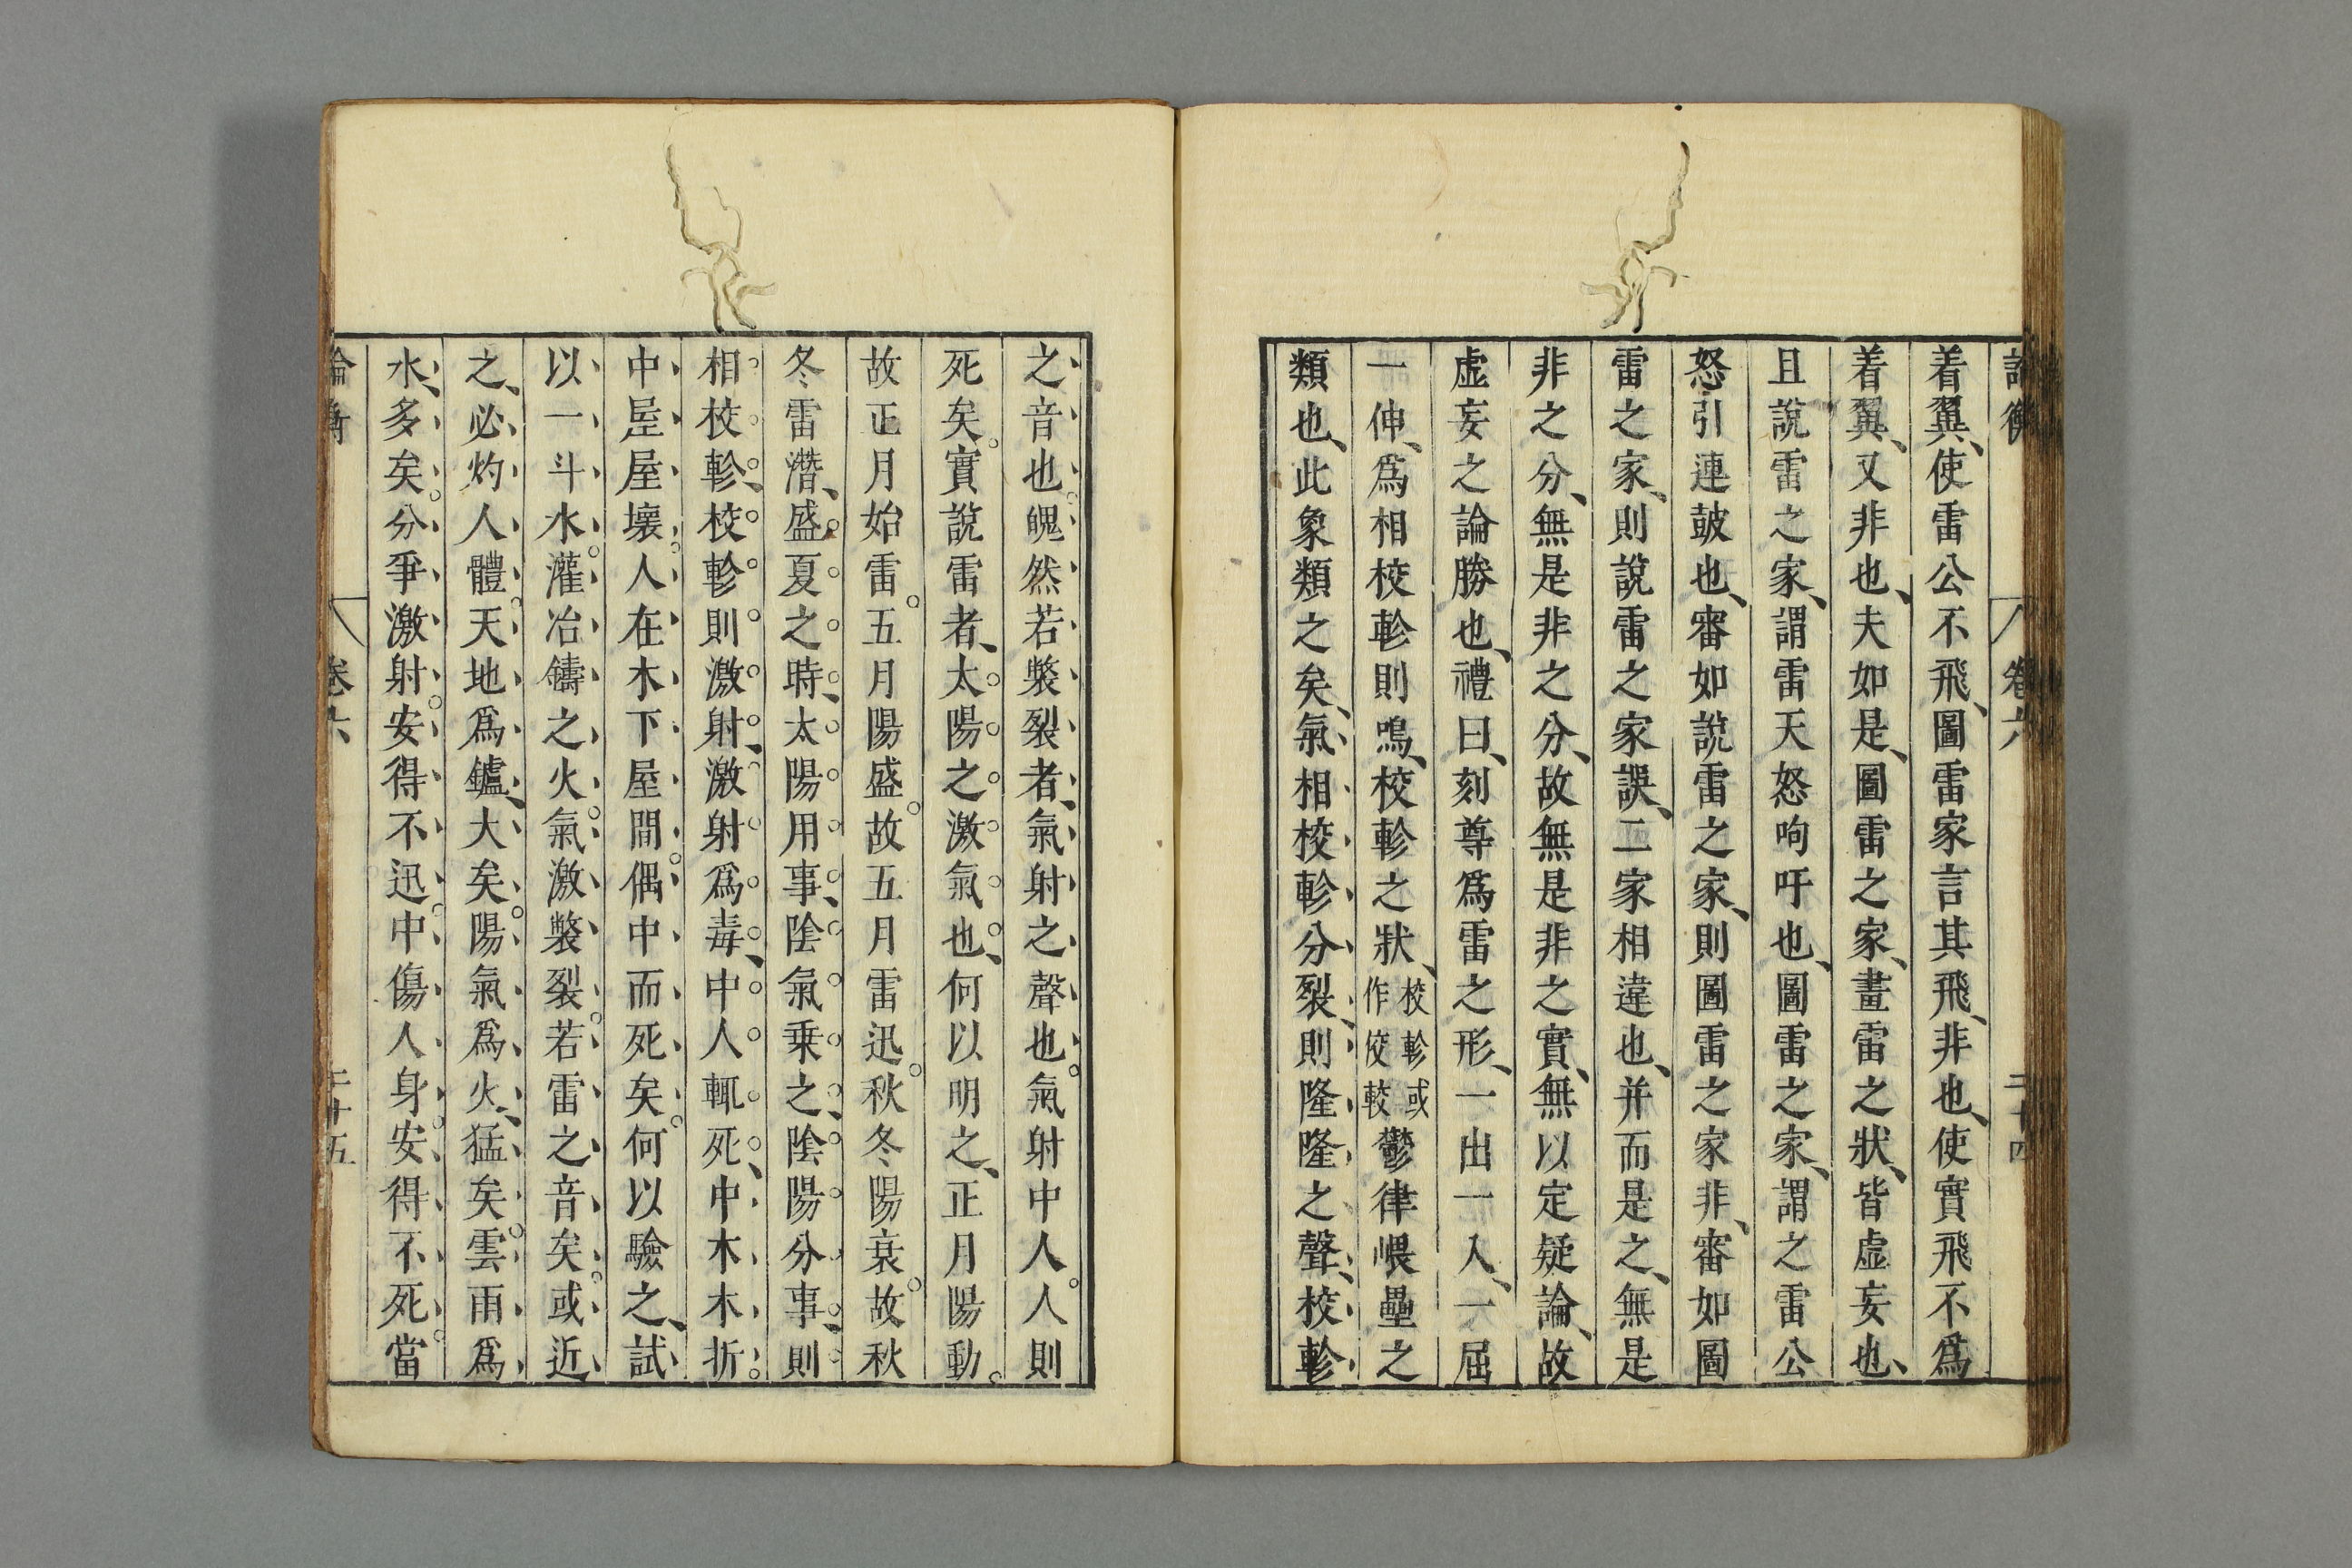 論衡 卷六 二十四
着翼、使雷公不飛、圖雷家言其飛、非也、使實飛不爲
着翼、又非也、夫如是、圖雷之家、畫雷之狀、皆虛妄也、
且說雷之家、謂雷天怒呴吁也、圖雷之家、謂之雷公
怒引連皷也、審如說雷之家、則圖雷之家非、審如圖
雷之家、則說雷之家誤、二家相違也、并而是之、無是
非之分、無是非之分、故無是非之實、無以定疑論、故
虛妄之論勝也、禮曰、刻尊爲雷之形、一出一入、一屈
一伸、爲相校軫則鳴、校軫之狀、校軫或作佼較鬱律㟪壘之
類也、此象類之矣、氣相校軫分裂、則隆隆之聲、校軫
之音也。魄然若𡚁裂者、氣射之聲也。氣射中人。人則
死矣。實說雷者、太陽之激氣也、何以明之、正月陽動。
故正月始雷。五月陽盛。故五月雷迅。秋冬陽衰。故秋
冬雷潛、盛夏之時、太陽用事、陰氣乗之、陰陽分事、則
相校軫、校軫則激射、激射爲毒、中人輒死、中木木折。
中屋屋壞。人在木下屋間。偶中而死矣。何以驗之、試
以一斗水。灌冶鑄之火。氣激𡚁裂。若雷之音矣。或近
之、必灼人體。天地爲鑪、大矣。陽氣爲火、猛矣。雲雨爲
水、多矣。分爭激射。安得不迅。中傷人身。安得不死。當
論衡 卷六 二十五